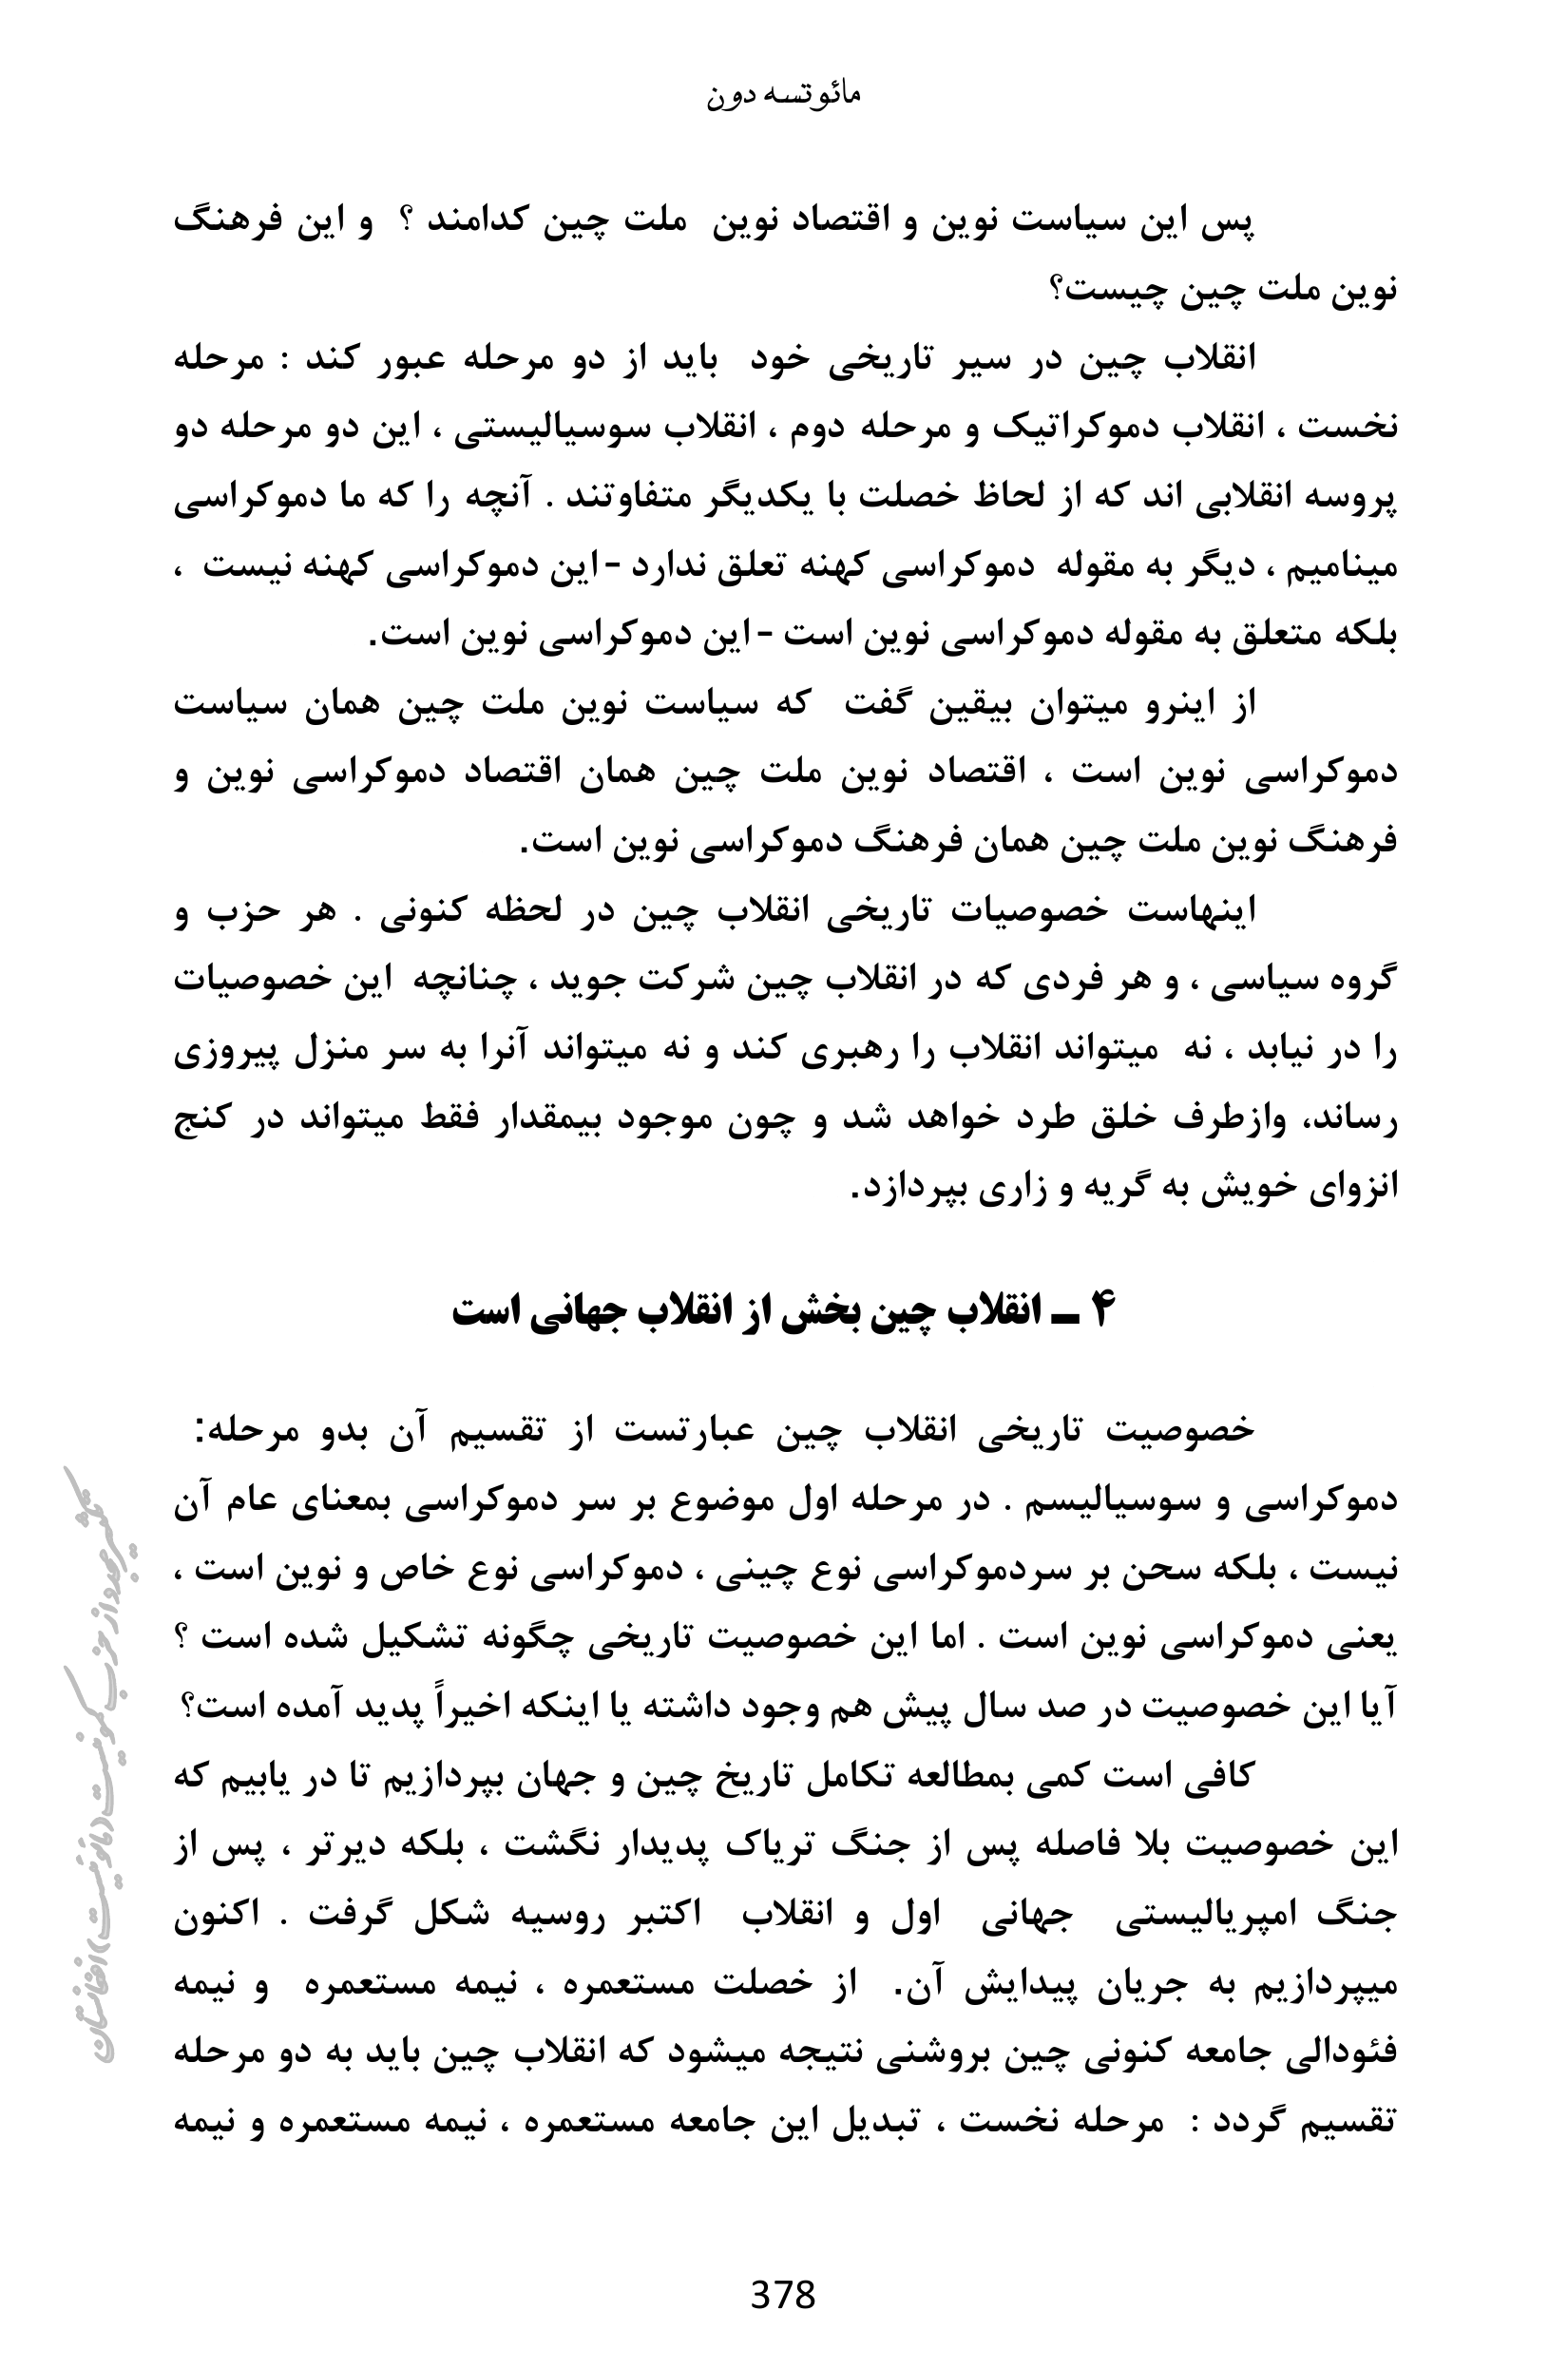 مائوتسه دون
پس این سیاست نوین و اقتصاد نوین ملت چین کدامند ؟ و این فرهنگ
نوین ملت چین چیست؟
انقلاب چین در سیر تاریخی خود باید از دو مرحله عبور کند : مرحله
نخست ، انقلاب دموکراتیک و مرحله دوم ، انقلاب سوسیالیستی ، این دو مرحله دو
پروسه انقلابی اند که از لحاظ خصلت با یکدیگر متفاوتند . آنچه را که ما دموکراسی
مینامیم ، دیگر به مقوله دموکراسی کهنه تعلق ندارد -این دموکراسی کهنه نیست ،
بلکه متعلق به مقوله دموکراسی نوین است -این دموکراسی نوین است.
از اینرو میتوان بیقین گفت که سیاست نوین ملت چین همان سیاست
دموکراسی نوین است ، اقتصاد نوین ملت چین همان اقتصاد دموکراسی نوین و
فرهنگ نوین ملت چین همان فرهنگ دموکراسی نوین است.
اینهاست خصوصیات تاریخی انقلاب چین در لحظه کنونی . هر حزب و
گروه سیاسی ، و هر فردی که در انقلاب چین شرکت جوید ، چنانچه این خصوصیات
را در نیابد ، نه میتواند انقلاب را رهبری کند و نه میتواند آنرا به سر منزل پیروزی
رساند، وازطرف خلق طرد خواهد شد و چون موجود بیمقدار فقط میتواند در کنج
انزوای خویش به گریه و زاری بپردازد.
۴ ــ انقلاب چین بخش از انقلاب جهانی است
خصوصیت تاریخی انقلاب چین عبارتست از تقسیم آن بدو مرحله:
دموکراسی و سوسیالیسم . در مرحله اول موضوع بر سر دموکراسی بمعنای عام آن
نیست ، بلکه سحن بر سردموکراسی نوع چینی ، دموکراسی نوع خاص و نوین است ،
یعنی دموکراسی نوین است . اما این خصوصیت تاریخی چگونه تشکیل شده است ؟
آیا این خصوصیت در صد سال پیش هم وجود داشته یا اینکه اخیراً پدید آمده است؟
کافی است کمی بمطالعه تکامل تاریخ چین و جهان بپردازیم تا در یابیم که
این خصوصیت بلا فاصله پس از جنگ تریاک پدیدار نگشت ، بلکه دیرتر ، پس از
جنگ امپریالیستی جهانی اول و انقلاب اکتبر روسیه شکل گرفت . اکنون
میپردازیم به جریان پیدایش آن. از خصلت مستعمره ، نیمه مستعمره و نیمه
فئودالی جامعه کنونی چین بروشنی نتیجه میشود که انقلاب چین باید به دو مرحله
تقسیم گردد : مرحله نخست ، تبدیل این جامعه مستعمره ، نیمه مستعمره و نیمه
تکثیر مجدد از حزب کمونیست (مائوئیست) افغانستان
378